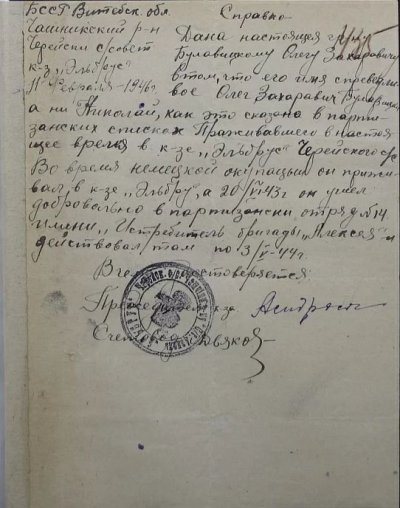 БССР Витебск. обл.
Чашникский р-н
Черейский с/совет
к-з „Эльбрус"
11 февраля - 1946 г
Справка
Дана настоящая гр-ну
Булавицкому Олегу Захаравичу
о том, что его имя справедли-
вое Олег Захаравич
а ни Николай, как это сказано в парти-
занских списках Праживавшего в настоя
щее время в к-зе „Эльбрус" Черейского с/с
Во время немецкой окупацыи он прожи-
вал, в к-зе „Эльбрус", а 20/VI 43 г. он ушел
добровально в партизански отряд №14
имени „Истребитель бригады „Алексея" и
действовал там по 3/V-44 г.
В чем и удостоверяется
Председатель к-за
Счетовод Дьяков